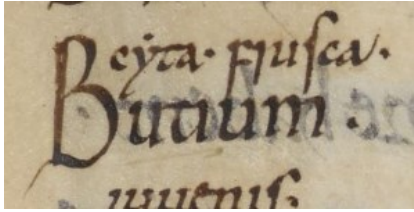 cyta· friusca·
Butium·
iuuenis: